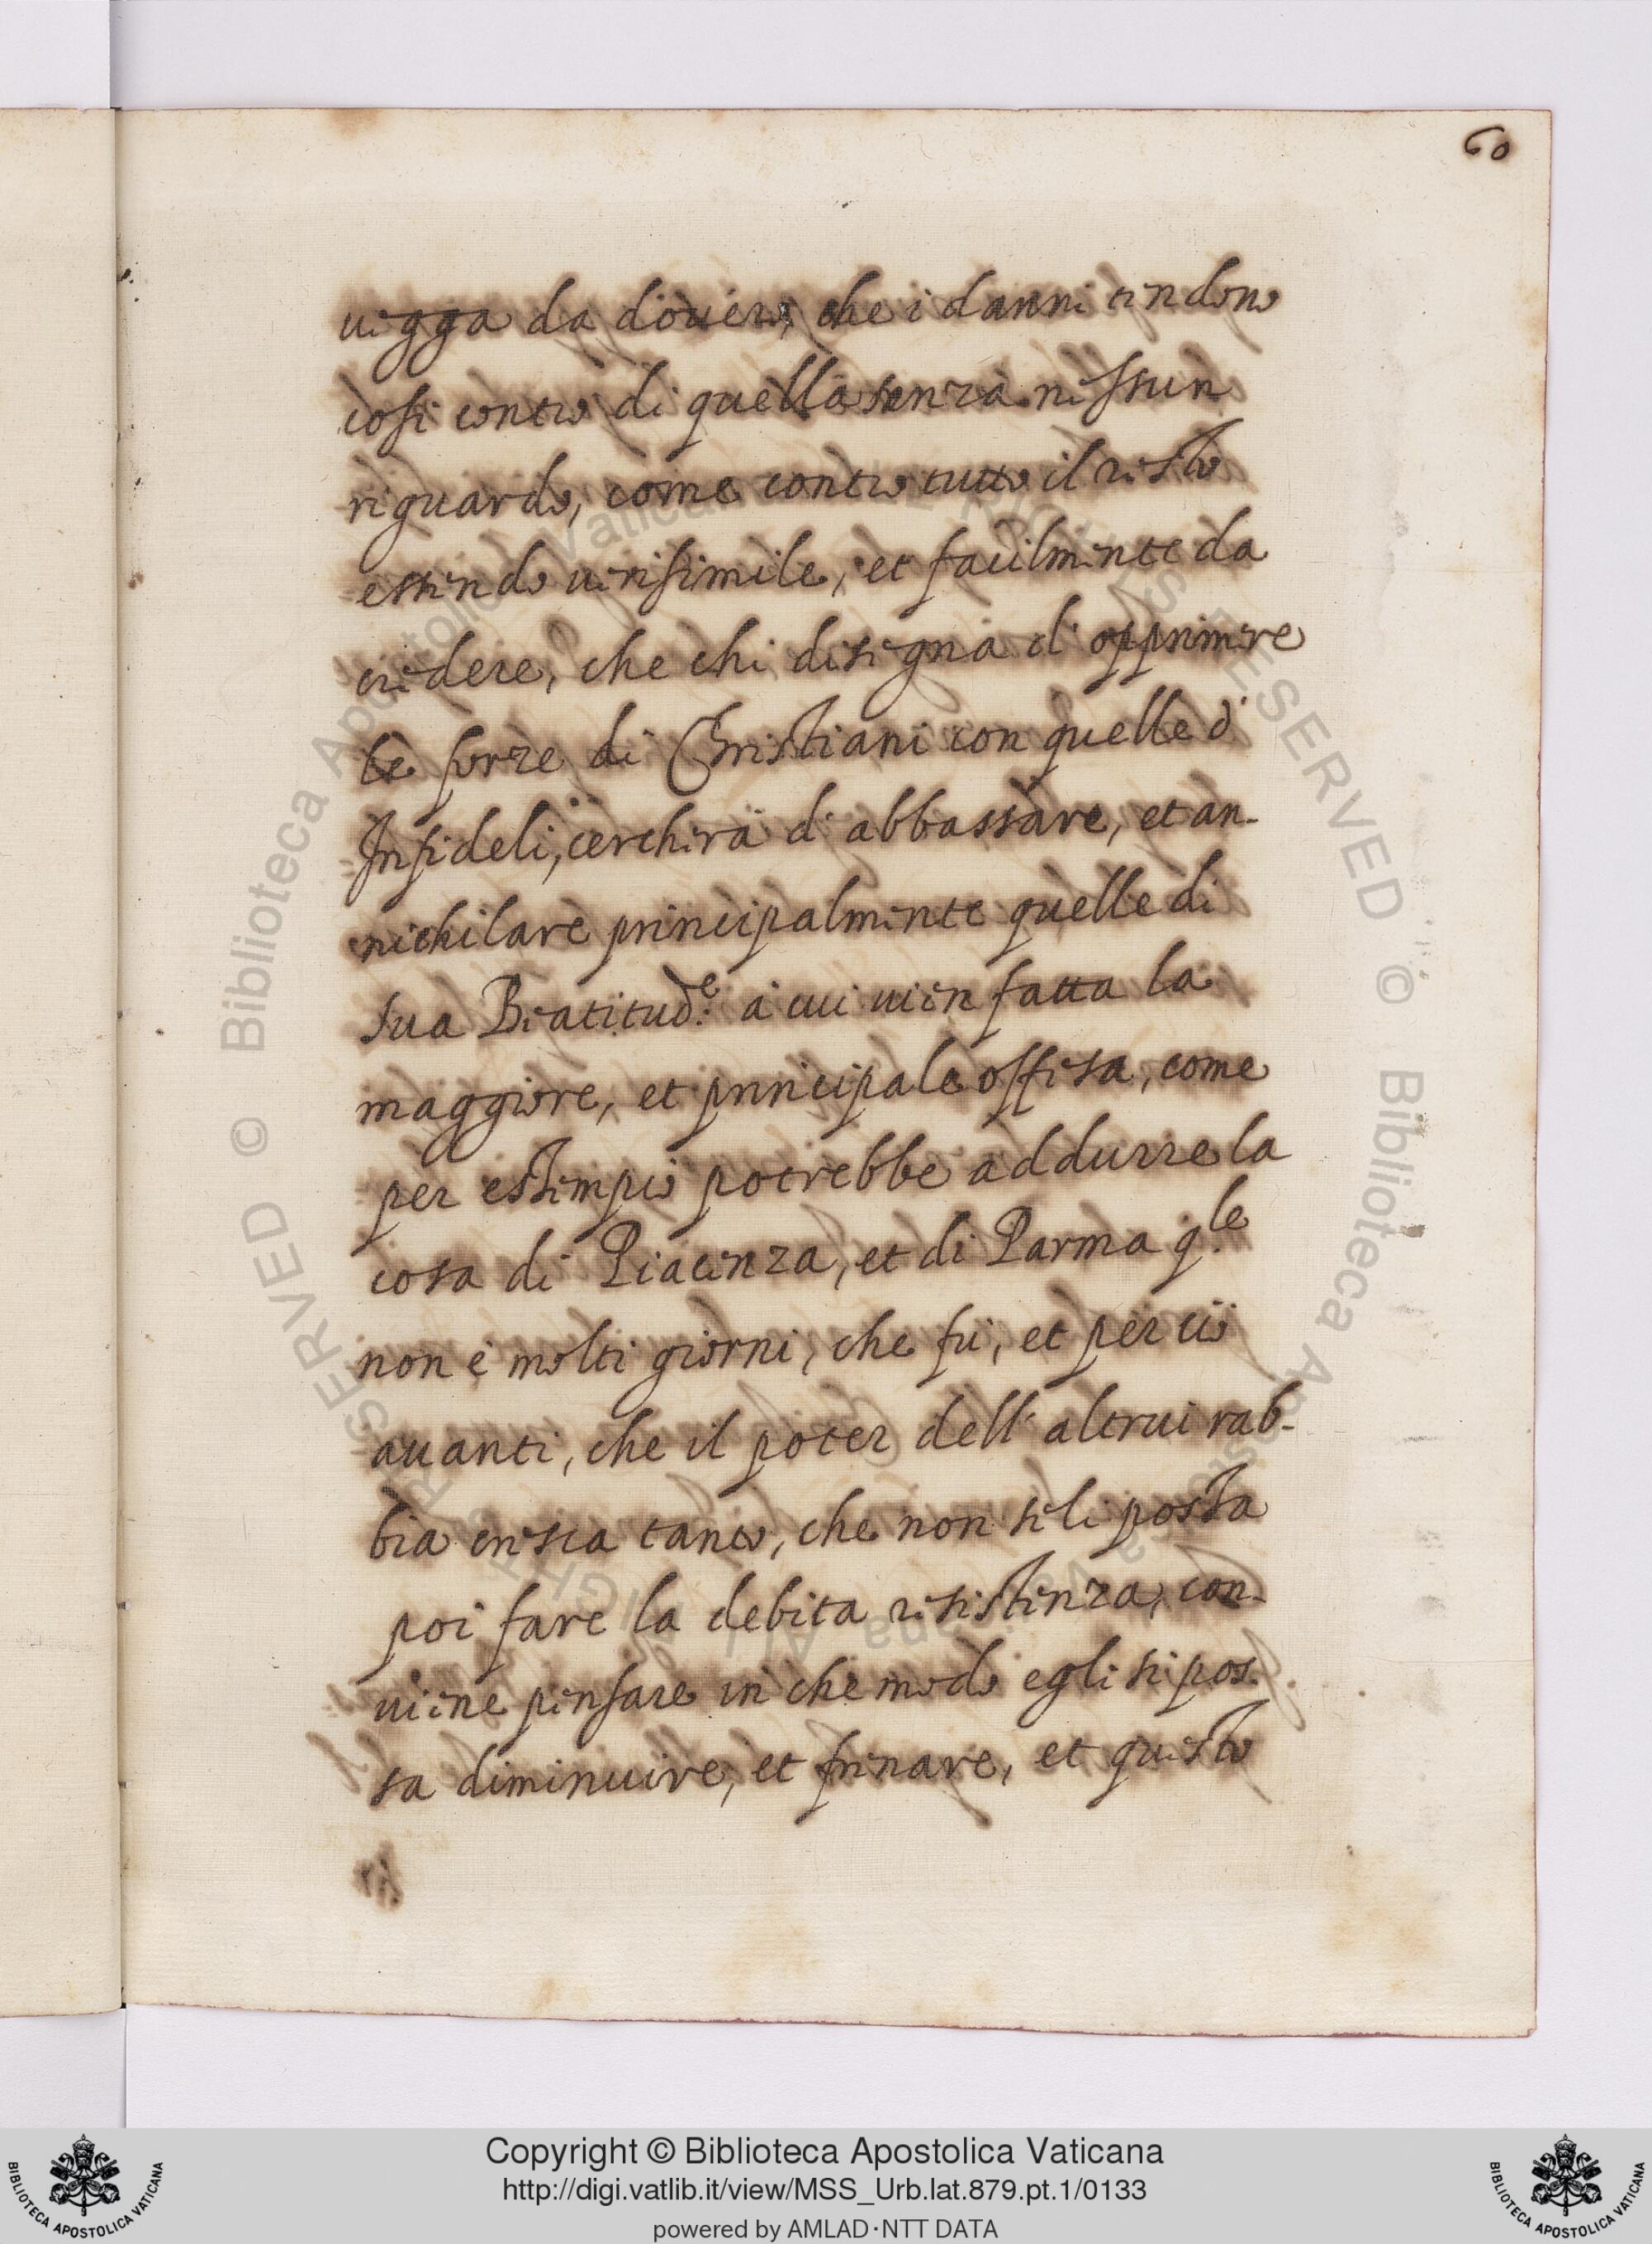 60
uegga da douero, che i danni tendono
cosi contro di quella senza nessun
riguardo, come contro tutto il resto
essendo uerisimile, et facilmente da
credere, che chi disegna d'opprimere
le forze di Christiani con quelle d'
Infideli, cercherà di abbassare, et an-
nichilare principalmente quelle di
sua Beatitud.e à cui uien fatta la
maggiore, et principale offesa, come
per essempio potrebbe addurre la
cosa di Piacenza, et di Parma q.le
non è molti giorni, che fù, et per ciò
auanti, che il poter dell'altrui rab-
bia cresca tanto, che non se li possa
poi fare la debita resistenza, con-
uiene pensare in che modo egli si pos-
sa diminuire, et frenare, et questo
Copyright © Biblioteca Apostolica Vaticana
http://digi.vatlib.it/view/MSS_Urb.lat.879.pt.1/0133
powered by AMLAD·NTT DATA
BIBLIOTECA APOSTOLICA VATICANA
BIBLIOTECA APOSTOLICA VATICANA
© Biblioteca Apostolica Vaticana ALL RIGHTS RESERVED © Biblioteca Apostolica Vaticana ALL RIGHTS RESERVED